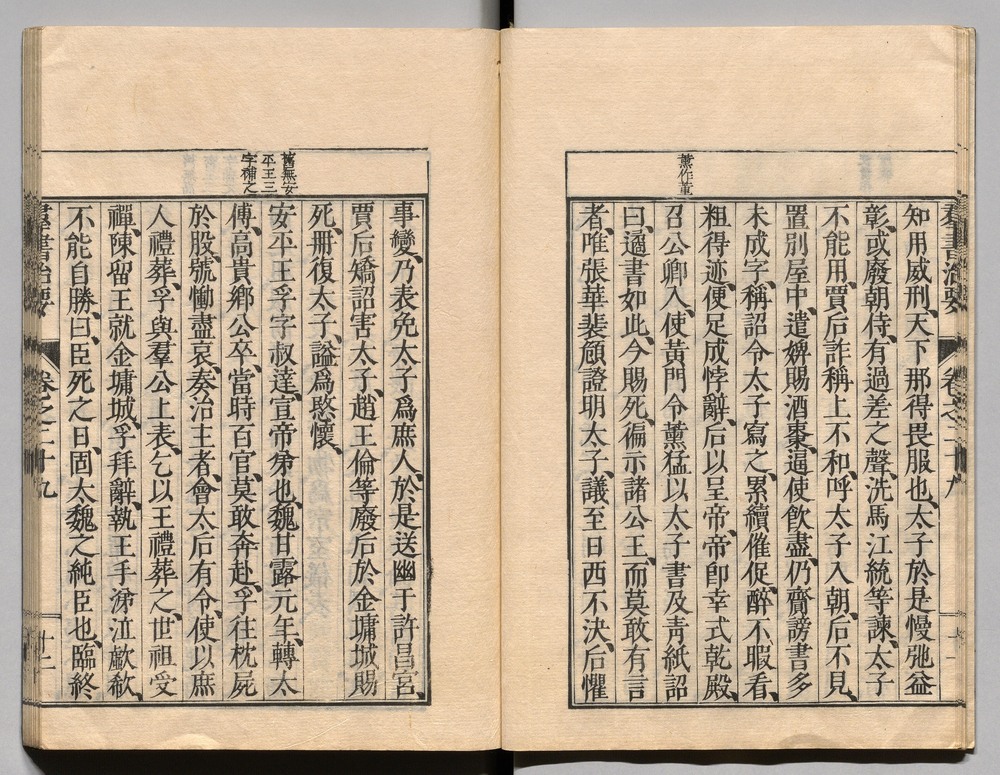 羣書治要 卷之二十九
薰作董
知用威刑、天下那得畏服也、太子於是慢弛益
彰、或廢朝侍、有過差之聲、洗馬江統等諫、太子
不能用、賈后詐稱上不和、呼太子入朝、后不見、
置別屋中、遣婢賜酒棗、逼使飮盡、仍齎謗書多
未成字、稱詔令太子寫之、累續催促、醉不暇看、
粗得迹、便足成悖辭、后以呈帝、帝卽幸式乾殿、
召公卿入、使黃門令薰猛以太子書及靑紙詔
曰、遹書如此、今賜死、徧示諸公王、而莫敢有言
者、唯張華裴頠證明太子、議至日西不決、后懼
舊無安
平王三
字補之
事變、乃表免太子爲庶人、於是送幽于許昌宮、
賈后矯詔害太子、趙王倫等廢后於金墉城賜
死、冊復太子、謚爲愍懷、
安平王孚字叔達、宣帝弟也、魏甘露元年、轉太
傅、高貴鄕公卒、當時百官、莫敢奔赴、孚往枕屍
於股、號慟盡哀、奏治主者、會太后有令、使以庶
人禮葬、孚與羣公上表、乞以王禮葬之、世祖受
禪、陳留王就金墉城、孚拜辭、執王手涕泣歔欷、
不能自勝、曰、臣死之日、固太魏之純臣也、臨終
羣書治要 卷之二十九 廿二